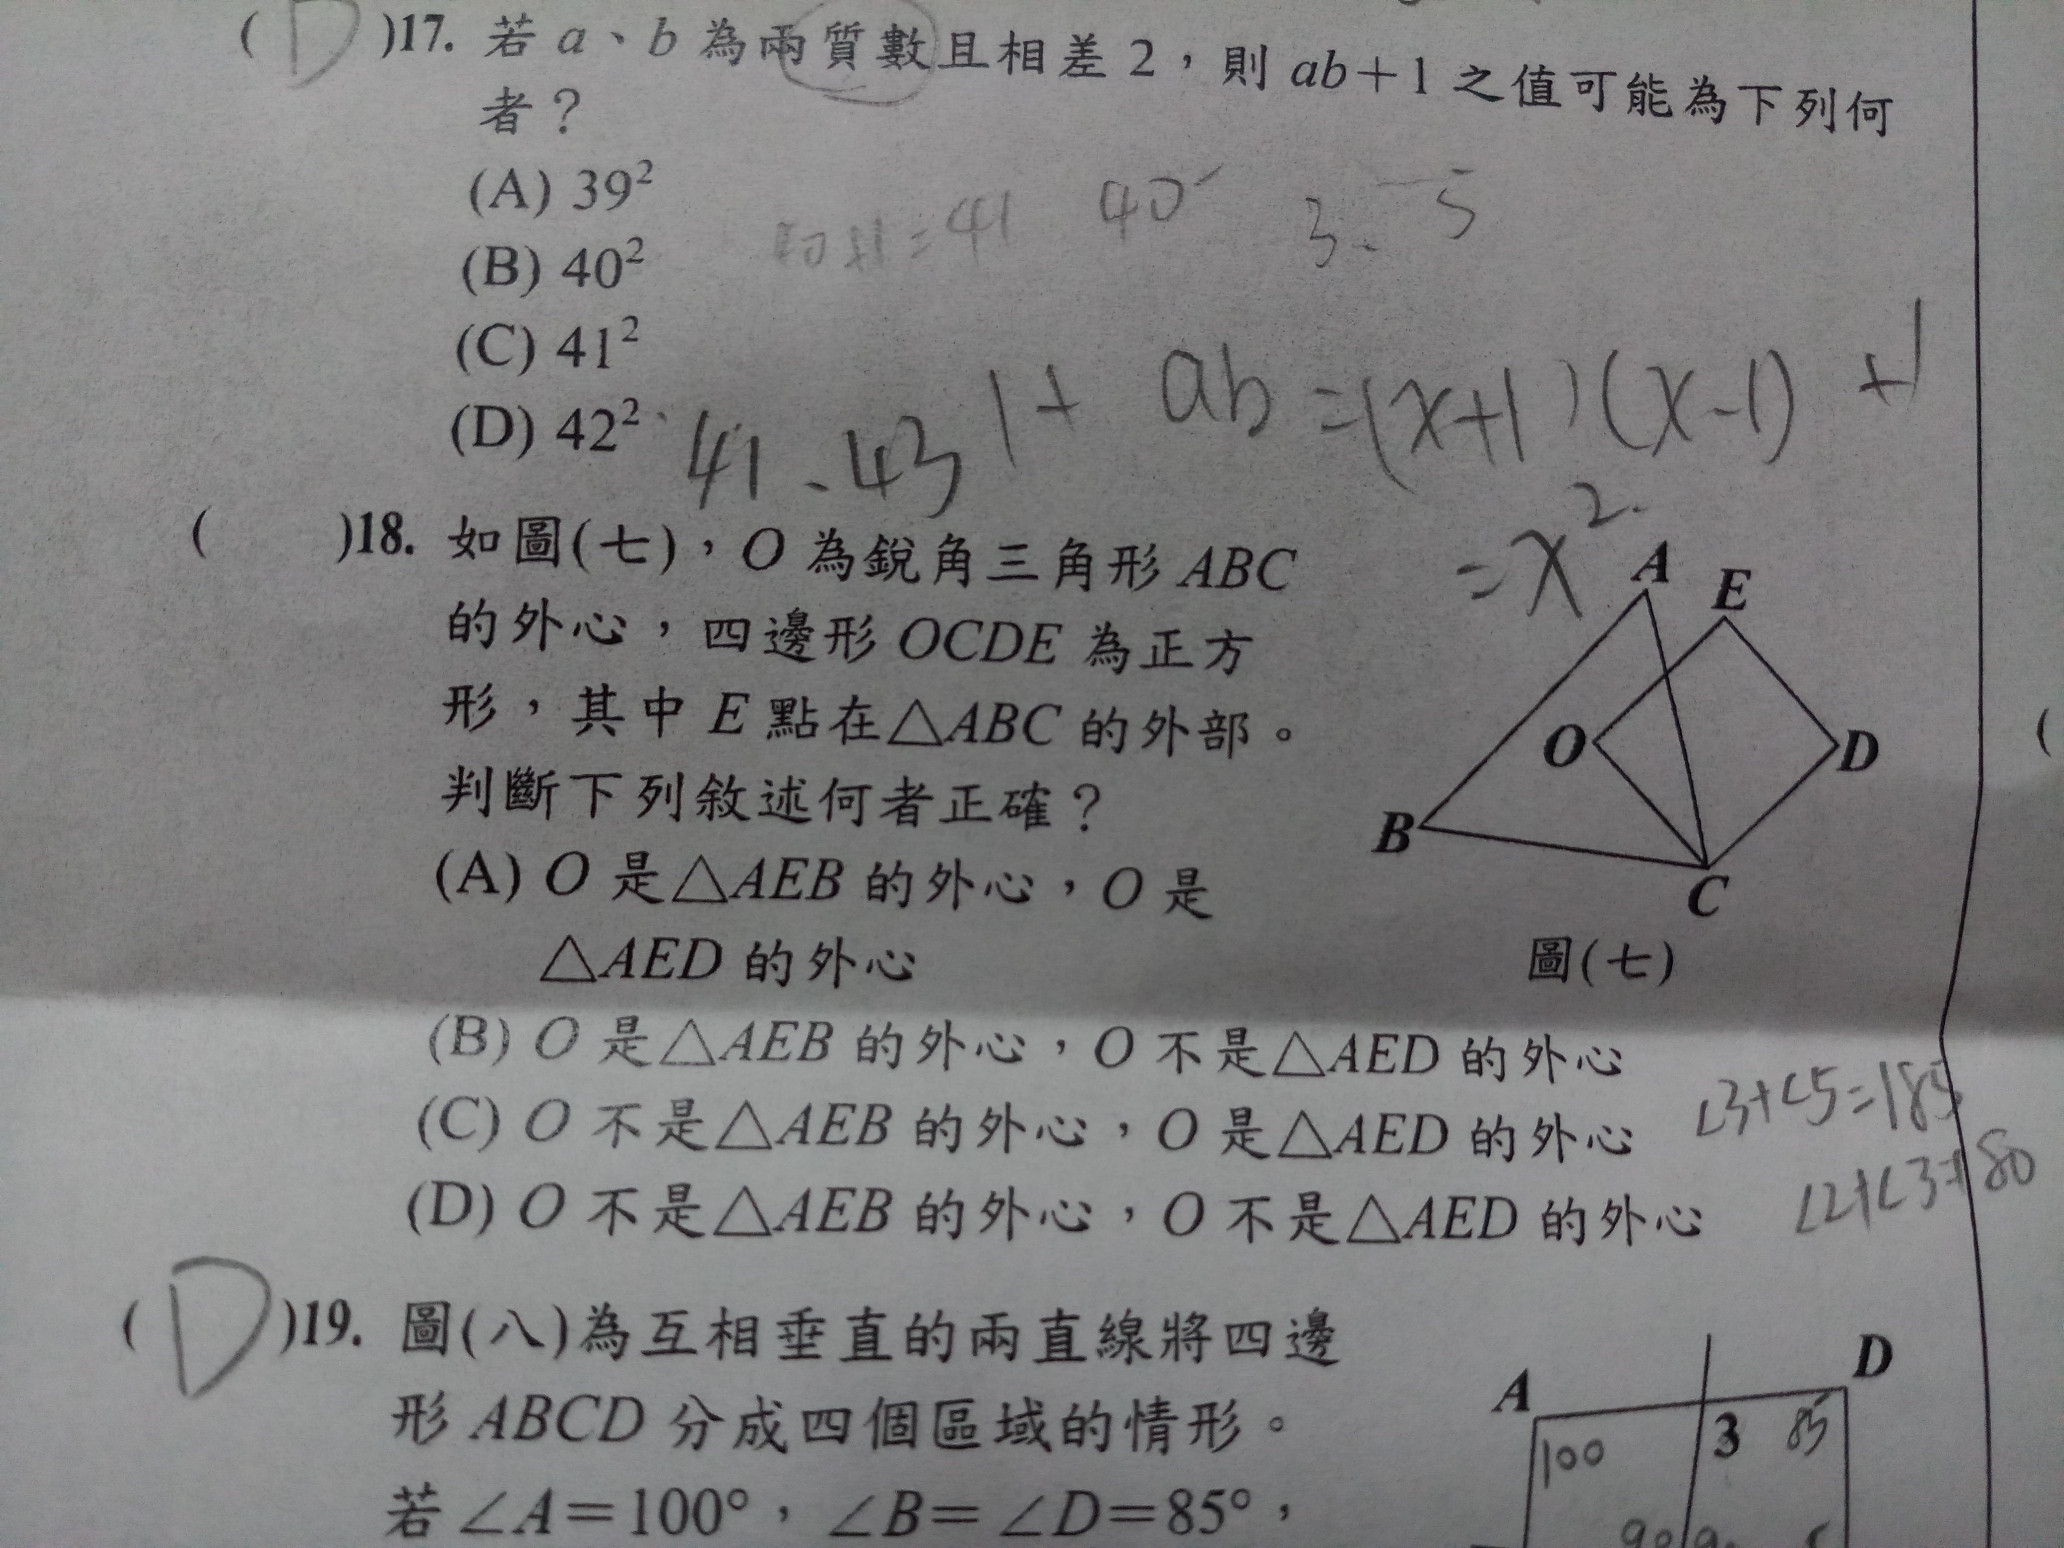 ( D )17. 若 a、b 為兩質數且相差 2，則 ab＋1 之值可能為下列何
者？
(A) 39²
(B) 40²
(C) 41²
(D) 42²
=41 40 3、5
41、43
1+ ab=(x+1)(x-1) +1
=x²
( )18. 如圖(七)，O 為銳角三角形 ABC
的外心，四邊形 OCDE 為正方
形，其中 E 點在△ABC 的外部。
判斷下列敘述何者正確？
(A) O 是△AEB 的外心，O 是
△AED 的外心
(B) O 是△AEB 的外心，O 不是△AED 的外心
(C) O 不是△AEB 的外心，O 是△AED 的外心
(D) O 不是△AEB 的外心，O 不是△AED 的外心
A E
O D
B
C
圖(七)
∠3+∠5=185
∠2+∠3=180
( D )19. 圖(八)為互相垂直的兩直線將四邊
形 ABCD 分成四個區域的情形。
若 ∠A＝100°，∠B＝ ∠D＝85°，
A D
100 3 85
90